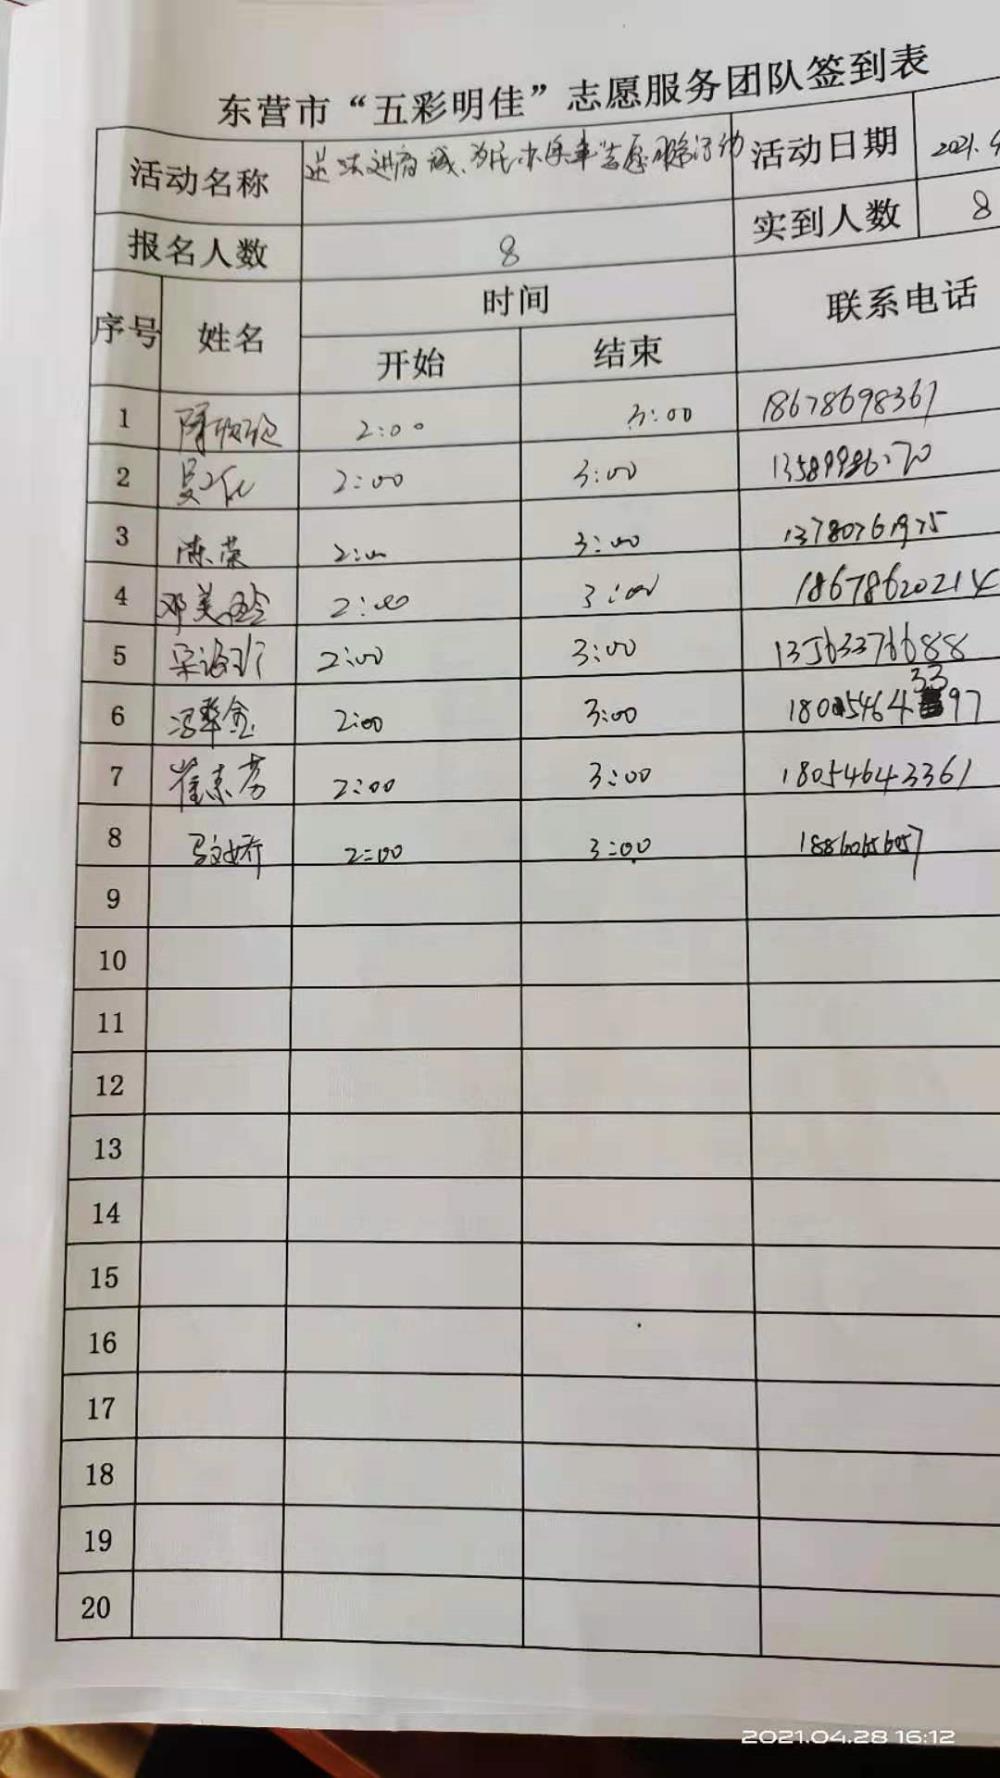 东营市“五彩明佳”志愿服务团队签到表
活动名称 送法进商城、为民办实事志愿服务活动 活动日期 2021.4
报名人数 8 实到人数 8
序号 姓名 时间 联系电话
开始 结束
1 2:00 3:00 18678698367
2 2:00 3:00
3 陈荣 2:00 3:00 13780761975
4 邓美玲 2:00 3:00 18678620214
5 2:00 3:00 13563376688
6 冯翠金 2:00 3:00 18054643397
7 崔素芳 2:00 3:00 18054643361
8 2:00 3:00
9
10
11
12
13
14
15
16
17
18
19
20
2021.04.28 16:12